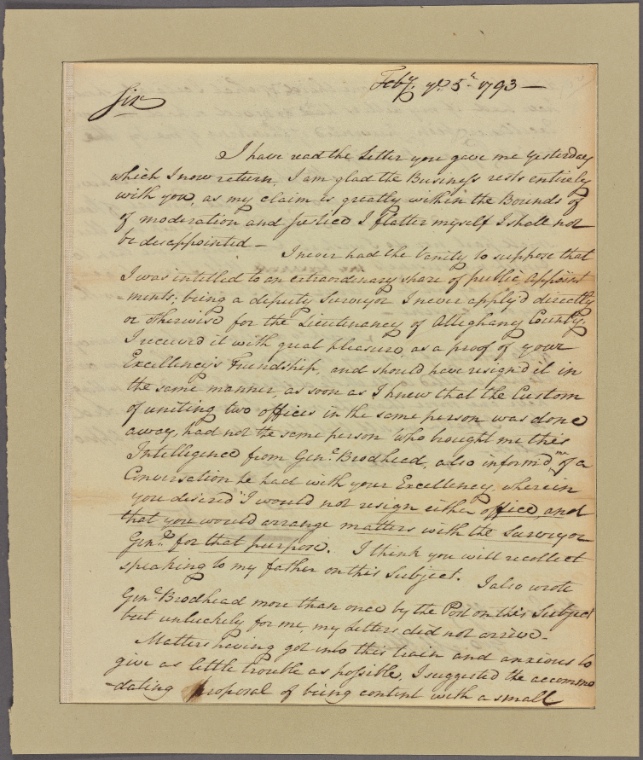 Feby. ye. 5th 1793 —
Sir
I have read the Letter you gave me yesterday
which I now return, I am glad the Business rests entirely
with you, as my claim is greatly within the Bounds of
of moderation and Justice I flatter myself I shall not
be disappointed —
I never had the Vanity to suppose that
I was intitled to an extraordinary share of public Appoint
ments; being a deputy Surveyor I never apply'd directly
or otherwise for the Lieutenancy of Alleghany County,
I received it with great pleasure, as a proof of your
Excellency's Friendship, and should have resign'd it in
the same manner, as soon as I knew that the Custom
of uniting two offices in the same person was done
away, had not the same person who brought me this
Intelligence from Genl. Brodhead, also inform'd me of a
Conversation he had with your Excellency, wherein
you desired I would not resign either office and
that you would arrange matters with the Surveyor
Genl. for that purpose. I think you will recollect
speaking to my father on this Subject.
I also wrote
Genl. Brodhead more than once by the Post on this Subject
but unluckily for me, my Letters did not arrive.
Matters having got into this train and anxious to
give as little trouble as possible, I suggested the accommo
-dating proposal of being content with a small